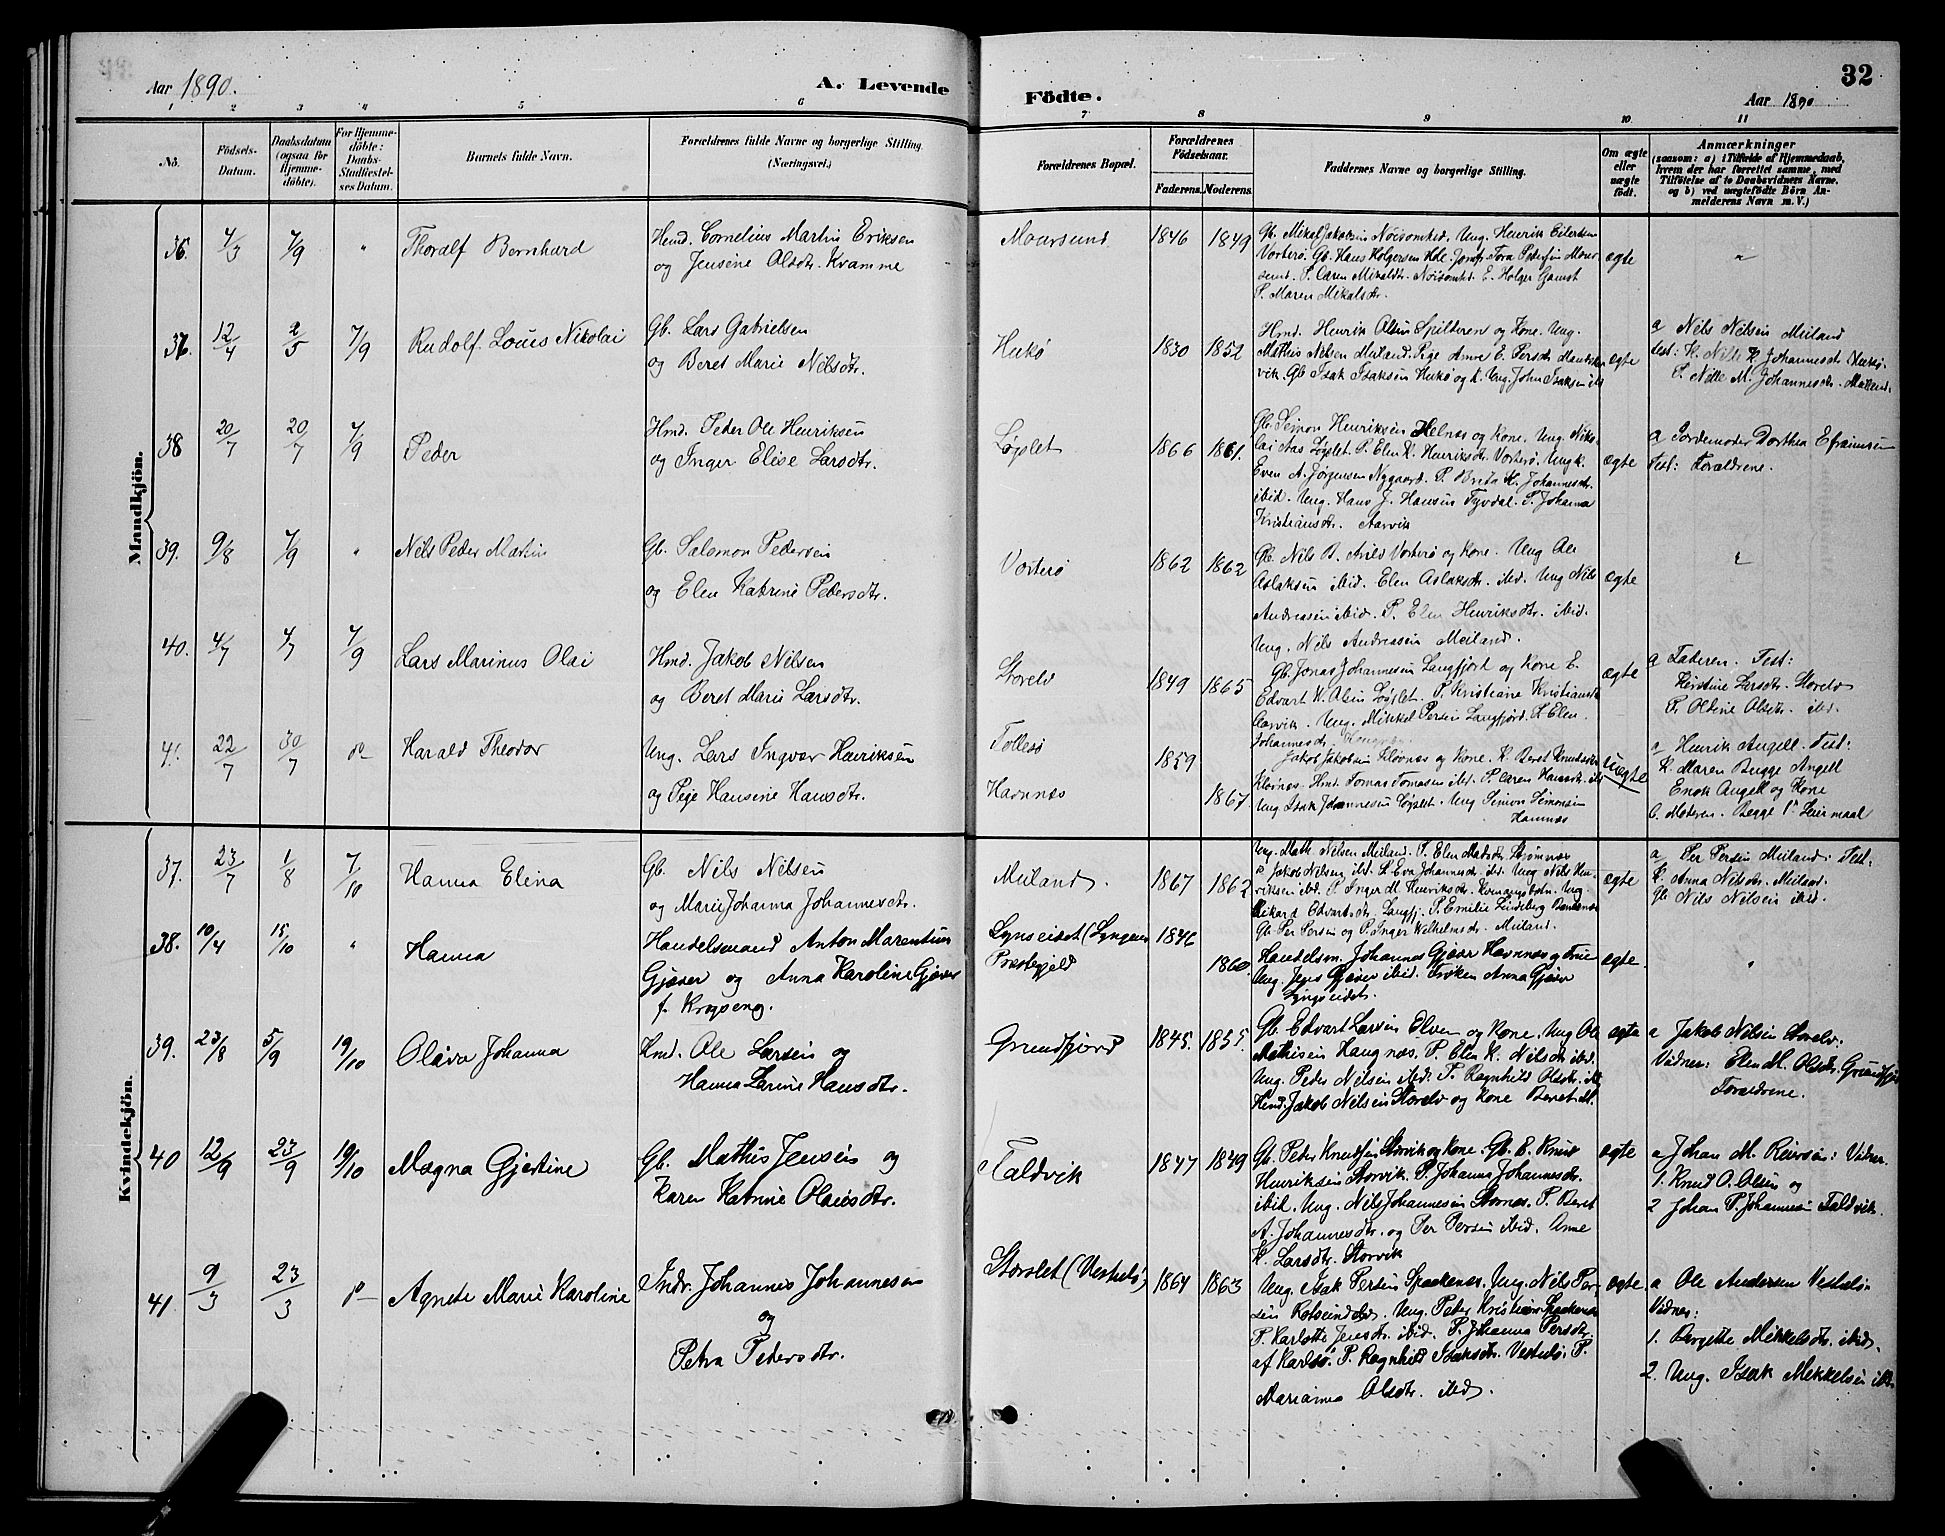 32
Aar 1890.
A. Levende
Födte.
Aar 1890
1 2 3 4 5 6
7 8 9 10 11
No.
Födsels-Datum.
Daabsdatum (ogsaa for Hjemme-döbte).
For Hjemme-döbte: Daabs-Stadfæstel-ses Datum.
Barnets fulde Navn.
Forældrenes fulde Navne og borgerlige Stilling.
(Næringsvei.)
Forældrenes Bopæl.
Forældrenes Födselsaar.
Faderens. Moderens.
Faddernes Navne og borgerlige Stilling.
Om ægte eller uægte födt.
Anmærkninger
(saasom: a) i Tilfælde af Hjemmedaab,
hvem der har forrettet samme, med
Tilföielse af to Daabsvidners Navne,
og b) ved uægtefödte Börn An-
melderens Navn m. V.)
Mandkjön.
36. 4/3 7/9 " Thoralf Bernhard
Hmd. Cornelius Martin Eriksen
og Jensine Olsdtr. Kvamme
Maursund 1846 1849
Gb. Mikal Jakobsen Noisomhed. Ung. Henrik Eilertsen
Vorterø. Gb. Hans Holgersen Hole. Jomf. Tora Pedersen Maur-
sund. P. Caren Mikalsdtr. Noisomhd. E. Holger Gamst
P. Maren Mikalsdtr.
ægte "
37. 12/4 2/5 7/9 Rudolf Louis Nikolai
Gb. Lars Gabrielsen
og Beret Marie Nilsdtr.
Hukø 1830 1852
Hmd. Henrik Olsen Spilderens og Kone. Ung.
Mathis Nilsen Meiland. Pige Anne E. Persdtr
vik. Gb Isak Isaksen Hukø og K. Ung. John Isaksen ibd
ægte
a Nils Nilsen Meiland
Test: K. Nille K. Johannesdtr. Hukø.
P. Nille M. Johannesdtr. Meiland.
38 20/7 20/7 7/9 Peder
Hmd. Peder Ole Henriksen
og Inger Elise Larsdtr.
Løpslet 1866 1861.
Gb. Simon Henriksen Helnæs og Kone. Ung. Niko-
lai Aas Løpslet. P. Elen K. Henriksdtr Vorterø. Ungk.
Even A. Jørgensen Nygaard. P. Brita K. Johannesdtr.
ibid. Ung. Hans J. Hansen Tyvdal. P. Johanna
Kristiansdtr. Aarvik
ægte
a Jordemoder Dorthea Efraimsen
Test: Forældrene.
39. 9/8 7/9 " Nils Peder Martin
Gb. Salomon Pedersen
og Elen Katrine Pedersdtr.
Vorterø 1862 1862
Gb. Nils B. Vorterø og Kone. Ung Ole
Aslaksen ibid. Elen Aslaksdtr. ibid. Ung Nils
Andreasen ibid. P. Elen Henriksdtr. ibid.
Ung. Nils Andreasen Meiland.
ægte "
40. 4/7 4/7 7/9 Lars Marinus Olai
Hmd. Jakob Nilsen
og Beret Marie Larsdtr.
Storelv 1849 1865
Gb. Jonas Johannesen Langfjord og Kone E.
Edvart K. Olsen Løpslet. P. Kristiane Kristiansdtr
Aarvik. Ung. Mikkel Persen Langfjord. P. Elen
Johannesdtr.
ægte
a Faderen. Test:
Kirstine Larsdtr. Storelv
P. Oldine Olsdtr. ibid.
41. 22/7 30/7 do Harald Theodor
Ung. Lars Ingvar Henriksen
og Pige Hansine Hansdtr.
Follesø 1859
Havnnæs 1867
Jakob Jakobsen Kløvnæs og Kone. K. Beret Knudsdtr
Kløvnæs. Hmd. Tomas Tomasen ibd. P. Caren Hansdtr. ibd
Ung Isak Johannesen Løpslet. Ung Simon Simonsen
Havnnæs
uægte
a Henrik Angell. Test:
K. Maren Bugge Angell
Enok Angell og Kone
b. Moderen. Begge 1ste Leiermaal
Kvindekjön.
37. 23/7 1/8 7/10 Hanna Elina
Gb. Nils Nilsen
og Marie Johanna Johannesdtr.
Meiland. 1867 1862
Ung. Math. Nilsen Meiland. P. Elen Matsdtr. Strømnæs
Jakob Nilsen ibd. P. Eva Johannesdtr. ibd. Ung Nils Hen-
riksen ibd. P. Inger M. Henriksdtr. Kvænangsbotn. Ung
Rikard Edvartsdtr. Langfj. P. Emilie Lindberg
Gb. Per Persen og P. Inger Wilhelmsdtr. Meiland.
ægte
a Per Persen Meiland: Test:
K. Anna Nilsdtr. Meiland.
Gb. Nils Nilsen ibid.
38. 10/4 15/10 " Hanna
Handelsmand Anton Marentius
Gjæver og Anna Karoline Gjæver
f.
Lyngseidet (Lyngens
Præstegjeld 1846 1860.
Handelsm. Johannes Gjæver Havnnæs og Frue
Ung. Jens Gjæver ibid. Frøken Anna Gjæver
Lyngseidet.
ægte. "
39. 23/8 5/9 19/10 Olava Johanna
Hmd. Ole Larsen og
Hanna Larine Hansdtr.
Grundfjord 1845. 1855.
Gb. Edvart Larsen Elven og Kone. Ung Ole
Mathisen Haugnæs. P. Elen K. Nilsdtr ibid.
Ung. Peder Nilsen ibd. P. Ragnhild Olsdtr. ibd
Hmd. Jakob Nilsen Storelv og Kone Beret M.
ægte
a Jakob Nilsen Storelv.
Vidner: Elen M. Olsdtr. Grundfjord
Forældrene.
40 12/9 23/9 19/10 Magna Gjertine
Gb. Mathis Jensen og
Karen Katrine Olaisdtr.
Taldvik 1847 1849
Gb. Peter Knudsen Storvik og Kone. Gb. E. Knud
Henriksen Storvik. P. Johanna Johannesdtr.
ibid. Ung. Nils Johannesen Stornæs. P. Beret
A. Johannesdtr. og Per Persen ibid. Anne
K. Larsdtr. Storvik
ægte
a Johan M. Reiersen: Vidner.
1. Knud O. Olsen og
2 Johan P. Johannesen Taldvik.
41. 9/3 23/3 do Agnete Marie Karoline
Indr. Johannes Johannesen
og
Petra Pedersdtr.
Storslet (Vestulø) 1864 1863
Ung. Isak Persen Spaakenæs. Ung. Nils Per-
sen Rotsundelv. Ung. Peter Kristiansen Spaakenæs
P. Karlotte Jensdtr. ibid. P. Johanna Persdtr.
af Karlsø. P. Ragnhild Isaksdtr. Vestulø. P.
Marianna Olsdtr. ibid.
ægte.
a Ole Andersen Vestulø.
Vidner:
1. Birgitte Mikkelsdtr. ibid.
2. Ung. Isak Mikkelsen ibd.